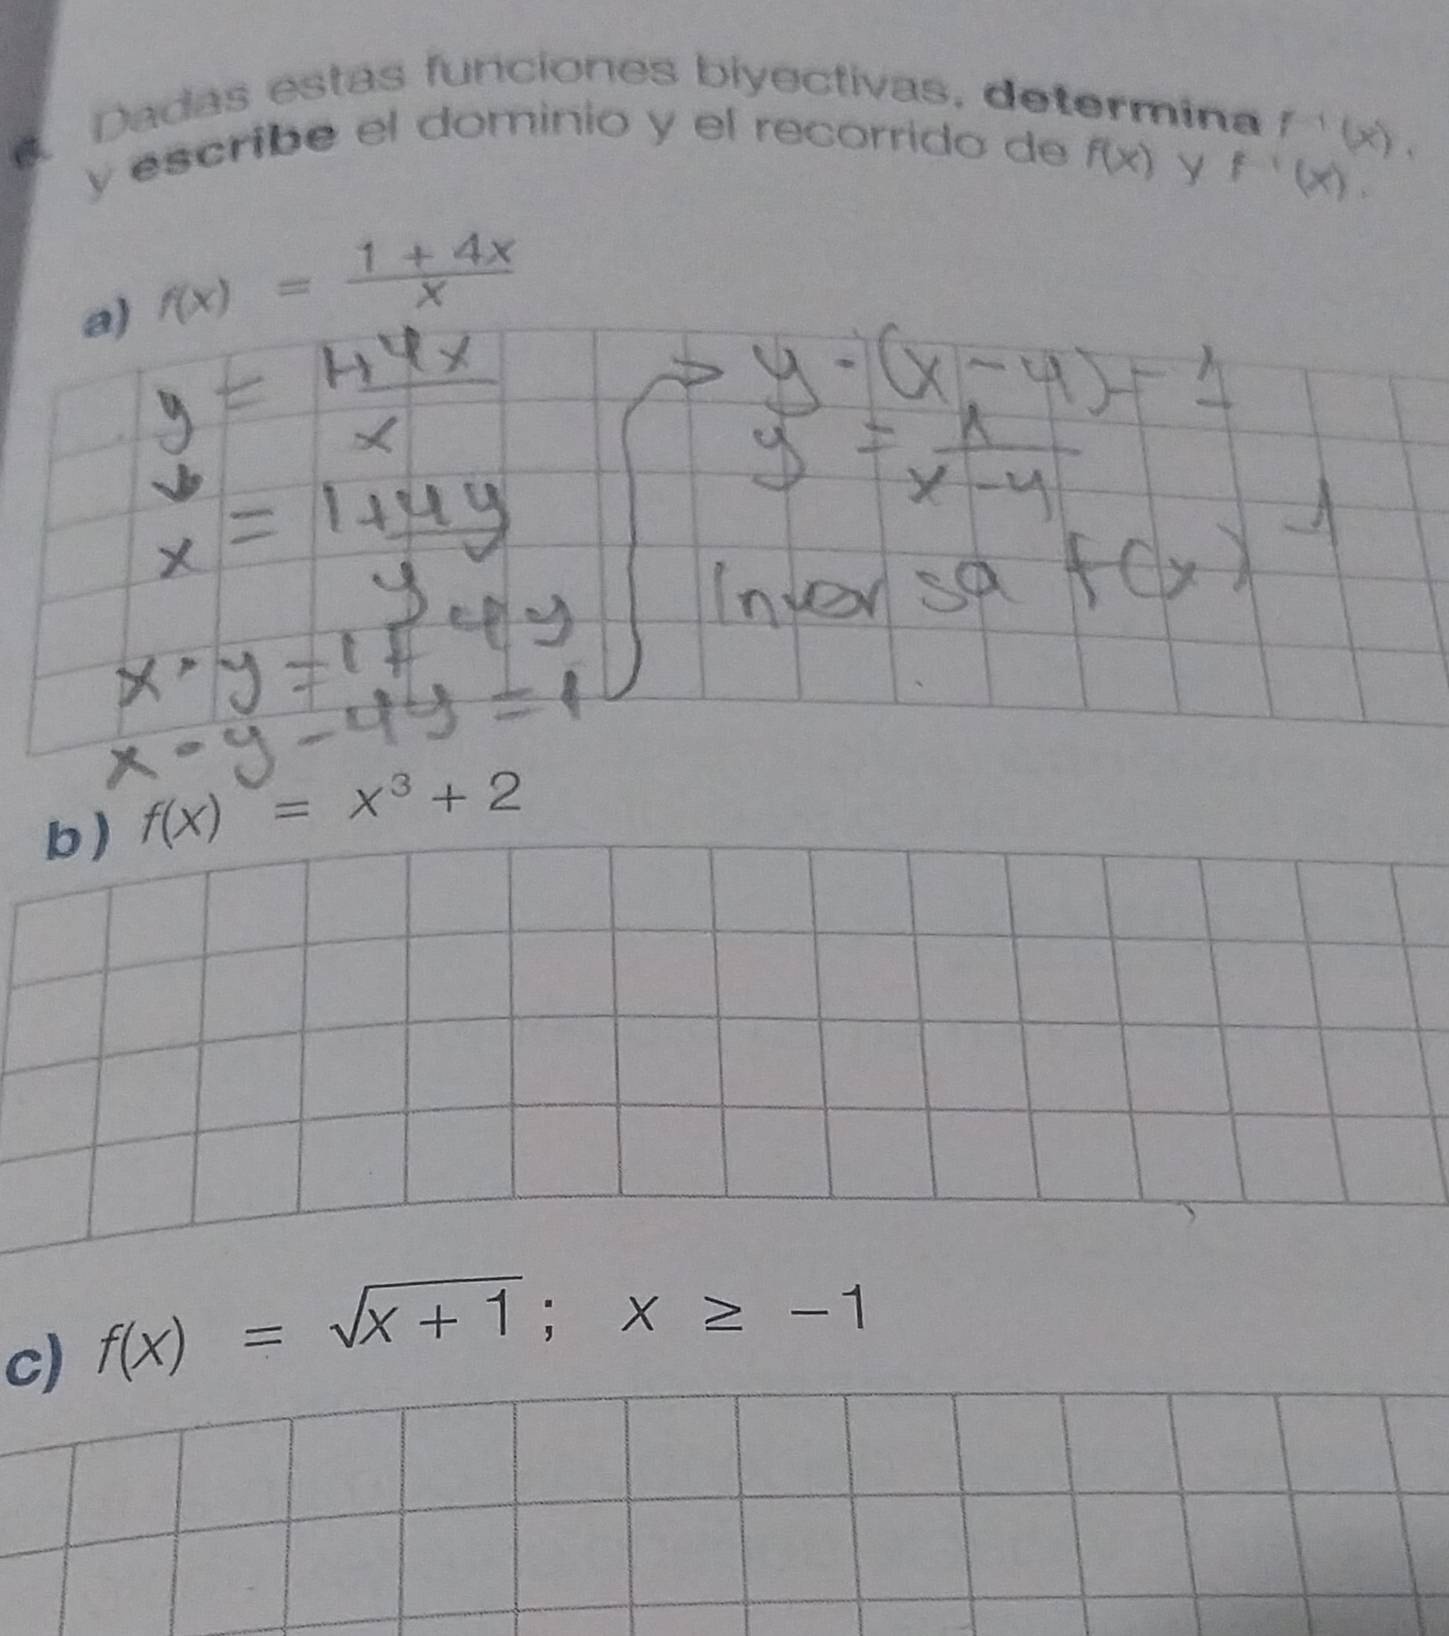 Dadas estas funciones biyectivas, determina f⁻¹(x),
y escribe el dominio y el recorrido de f(x) y f⁻¹(x).
a) f(x) = (1 + 4x)/x
y = (1+4x)/x
x = (1+4y)/y
x · y = 1 + 4y
x · y - 4y = 1
y · (x - 4) = 1
y = 1/(x - 4)
Inversa f(x)⁻¹
b) f(x) = x³ + 2
c) f(x) = √(x + 1) ; x ≥ -1